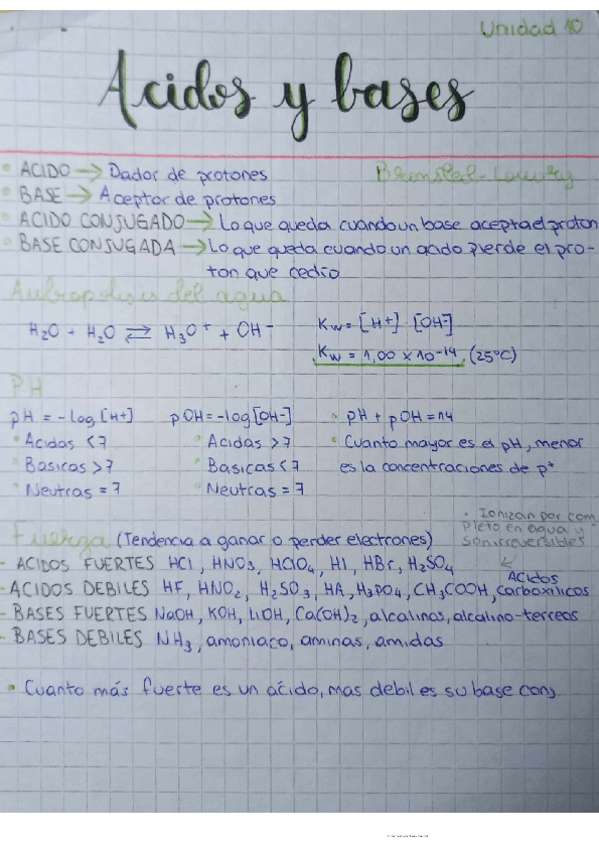 Unidad 10
Acidos y bases
ACIDO → Dador de protones
Bronsted-Lowry
BASE → Aceptor de protones
ACIDO CONJUGADO → Lo que queda cuando un base acepta el proton
BASE CONJUGADA → Lo que queda cuando un acido pierde el pro-
ton que cedio
del agua
H₂O + H₂O ⇌ H₃O⁺ + OH⁻
Kw = [H+] · [OH-]
Kw = 1,00 x 10⁻¹⁴ (25°C)
PH
pH = -log [H+] pOH = -log [OH-] • pH + pOH = 14
• Acidas < 7 • Acidas > 7 • Cuanto mayor es el pH, menor
• Basicas > 7 • Basicas < 7 es la concentraciones de p⁺
• Neutras = 7 • Neutras = 7
• Ionizan por com
pleto en agua y
son irreversibles
Fuerza (Tendencia a ganar o perder electrones)
- ACIDOS FUERTES HCl, HNO₃, HClO₄, HI, HBr, H₂SO₄
- ACIDOS DEBILES HF, HNO₂, H₂SO₃, HA, H₃PO₄, CH₃COOH, Acidos carboxilicos
- BASES FUERTES NaOH, KOH, LiOH, Ca(OH)₂, alcalinos, alcalino-terreos
- BASES DEBILES NH₃, amoniaco, aminas, amidas
• Cuanto más fuerte es un acido, mas debil es su base conj